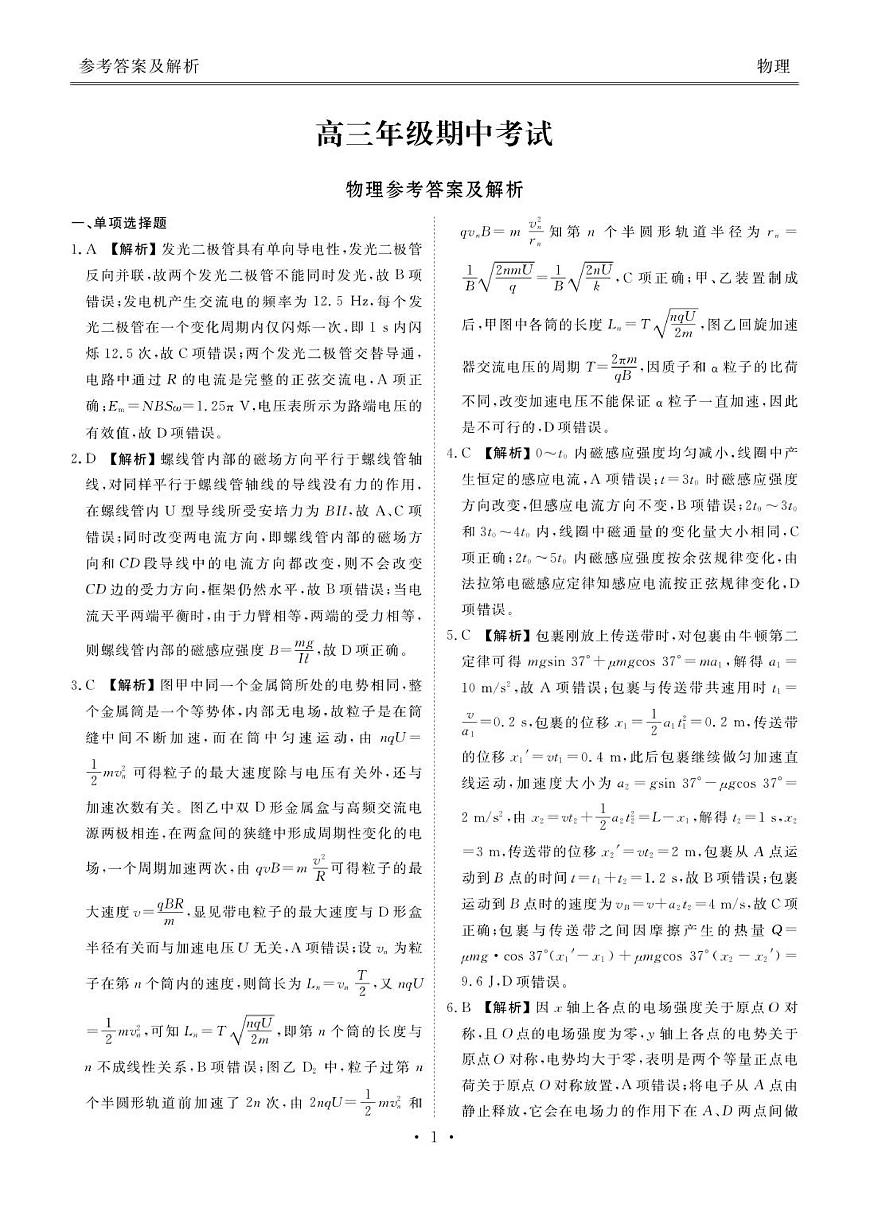 参考答案及解析
物理
高三年级期中考试
物理参考答案及解析
一、单项选择题
1. A 【解析】发光二极管具有单向导电性,发光二极管
反向并联,故两个发光二极管不能同时发光,故 B 项
错误;发电机产生交流电的频率为 12. 5 Hz,每个发
光二极管在一个变化周期内仅闪烁一次,即 1 s 内闪
烁 12.5 次,故 C 项错误;两个发光二极管交替导通,
电路中通过 R 的电流是完整的正弦交流电,A 项正
确;Eₘ=NBSω=1.25π V,电压表所示为路端电压的
有效值,故 D 项错误。
2. D 【解析】螺线管内部的磁场方向平行于螺线管轴
线,对同样平行于螺线管轴线的导线没有力的作用,
在螺线管内 U 型导线所受安培力为 BIl,故 A、C 项
错误;同时改变两电流方向,即螺线管内部的磁场方
向和 CD 段导线中的电流方向都改变,则不会改变
CD 边的受力方向,框架仍然水平,故 B 项错误;当电
流天平两端平衡时,由于力臂相等,两端的受力相等,
则螺线管内部的磁感应强度 B=mg/Il,故 D 项正确。
3. C 【解析】图甲中同一个金属筒所处的电势相同,整
个金属筒是一个等势体,内部无电场,故粒子是在筒
缝中间不断加速,而在筒中匀速运动,由 nqU=
1/2 mvₙ² 可得粒子的最大速度除与电压有关外,还与
加速次数有关。图乙中双 D 形金属盒与高频交流电
源两极相连,在两盒间的狭缝中形成周期性变化的电
场,一个周期加速两次,由 qvB=m v²/R 可得粒子的最
大速度 v=qBR/m,显见带电粒子的最大速度与 D 形盒
半径有关而与加速电压 U 无关,A 项错误;设 vₙ 为粒
子在第 n 个筒内的速度,则筒长为 Lₙ=vₙ T/2,又 nqU
=1/2 mvₙ²,可知 Lₙ=T√(nqU/2m),即第 n 个筒的长度与
n 不成线性关系,B 项错误;图乙 D₂ 中,粒子过第 n
个半圆形轨道前加速了 2n 次,由 2nqU=1/2 mvₙ² 和
qvₙB=m vₙ²/rₙ 知第 n 个半圆形轨道半径为 rₙ=
1/B √(2nmU/q)=1/B √(2nU/k),C 项正确;甲、乙装置制成
后,甲图中各筒的长度 Lₙ=T√(nqU/2m),图乙回旋加速
器交流电压的周期 T=2πm/qB,因质子和 α 粒子的比荷
不同,改变加速电压不能保证 α 粒子一直加速,因此
是不可行的,D 项错误。
4. C 【解析】0～t₀ 内磁感应强度均匀减小,线圈中产
生恒定的感应电流,A 项错误;t=3t₀ 时磁感应强度
方向改变,但感应电流方向不变,B 项错误;2t₀～3t₀
和 3t₀～4t₀ 内,线圈中磁通量的变化量大小相同,C
项正确;2t₀～5t₀ 内磁感应强度按余弦规律变化,由
法拉第电磁感应定律知感应电流按正弦规律变化,D
项错误。
5. C 【解析】包裹刚放上传送带时,对包裹由牛顿第二
定律可得 mgsin 37°+μmgcos 37°=ma₁,解得 a₁=
10 m/s²,故 A 项错误;包裹与传送带共速用时 t₁=
v/a₁=0.2 s,包裹的位移 x₁=1/2 a₁t₁²=0.2 m,传送带
的位移 x₁′=vt₁=0.4 m,此后包裹继续做匀加速直
线运动,加速度大小为 a₂=gsin 37°-μgcos 37°=
2 m/s²,由 x₂=vt₂+1/2 a₂t₂²=L-x₁,解得 t₂=1 s,x₂
=3 m,传送带的位移 x₂′=vt₂=2 m,包裹从 A 点运
动到 B 点的时间 t=t₁+t₂=1.2 s,故 B 项错误;包裹
运动到 B 点时的速度为 v_B=v+a₂t₂=4 m/s,故 C 项
正确;包裹与传送带之间因摩擦产生的热量 Q=
μmg·cos 37°(x₁′-x₁)+μmgcos 37°(x₂-x₂′)=
9.6 J,D 项错误。
6. B 【解析】因 x 轴上各点的电场强度关于原点 O 对
称,且 O 点的电场强度为零,y 轴上各点的电势关于
原点 O 对称,电势均大于零,表明是两个等量正点电
荷关于原点 O 对称放置,A 项错误;将电子从 A 点由
静止释放,它会在电场力的作用下在 A、D 两点间做
• 1 •